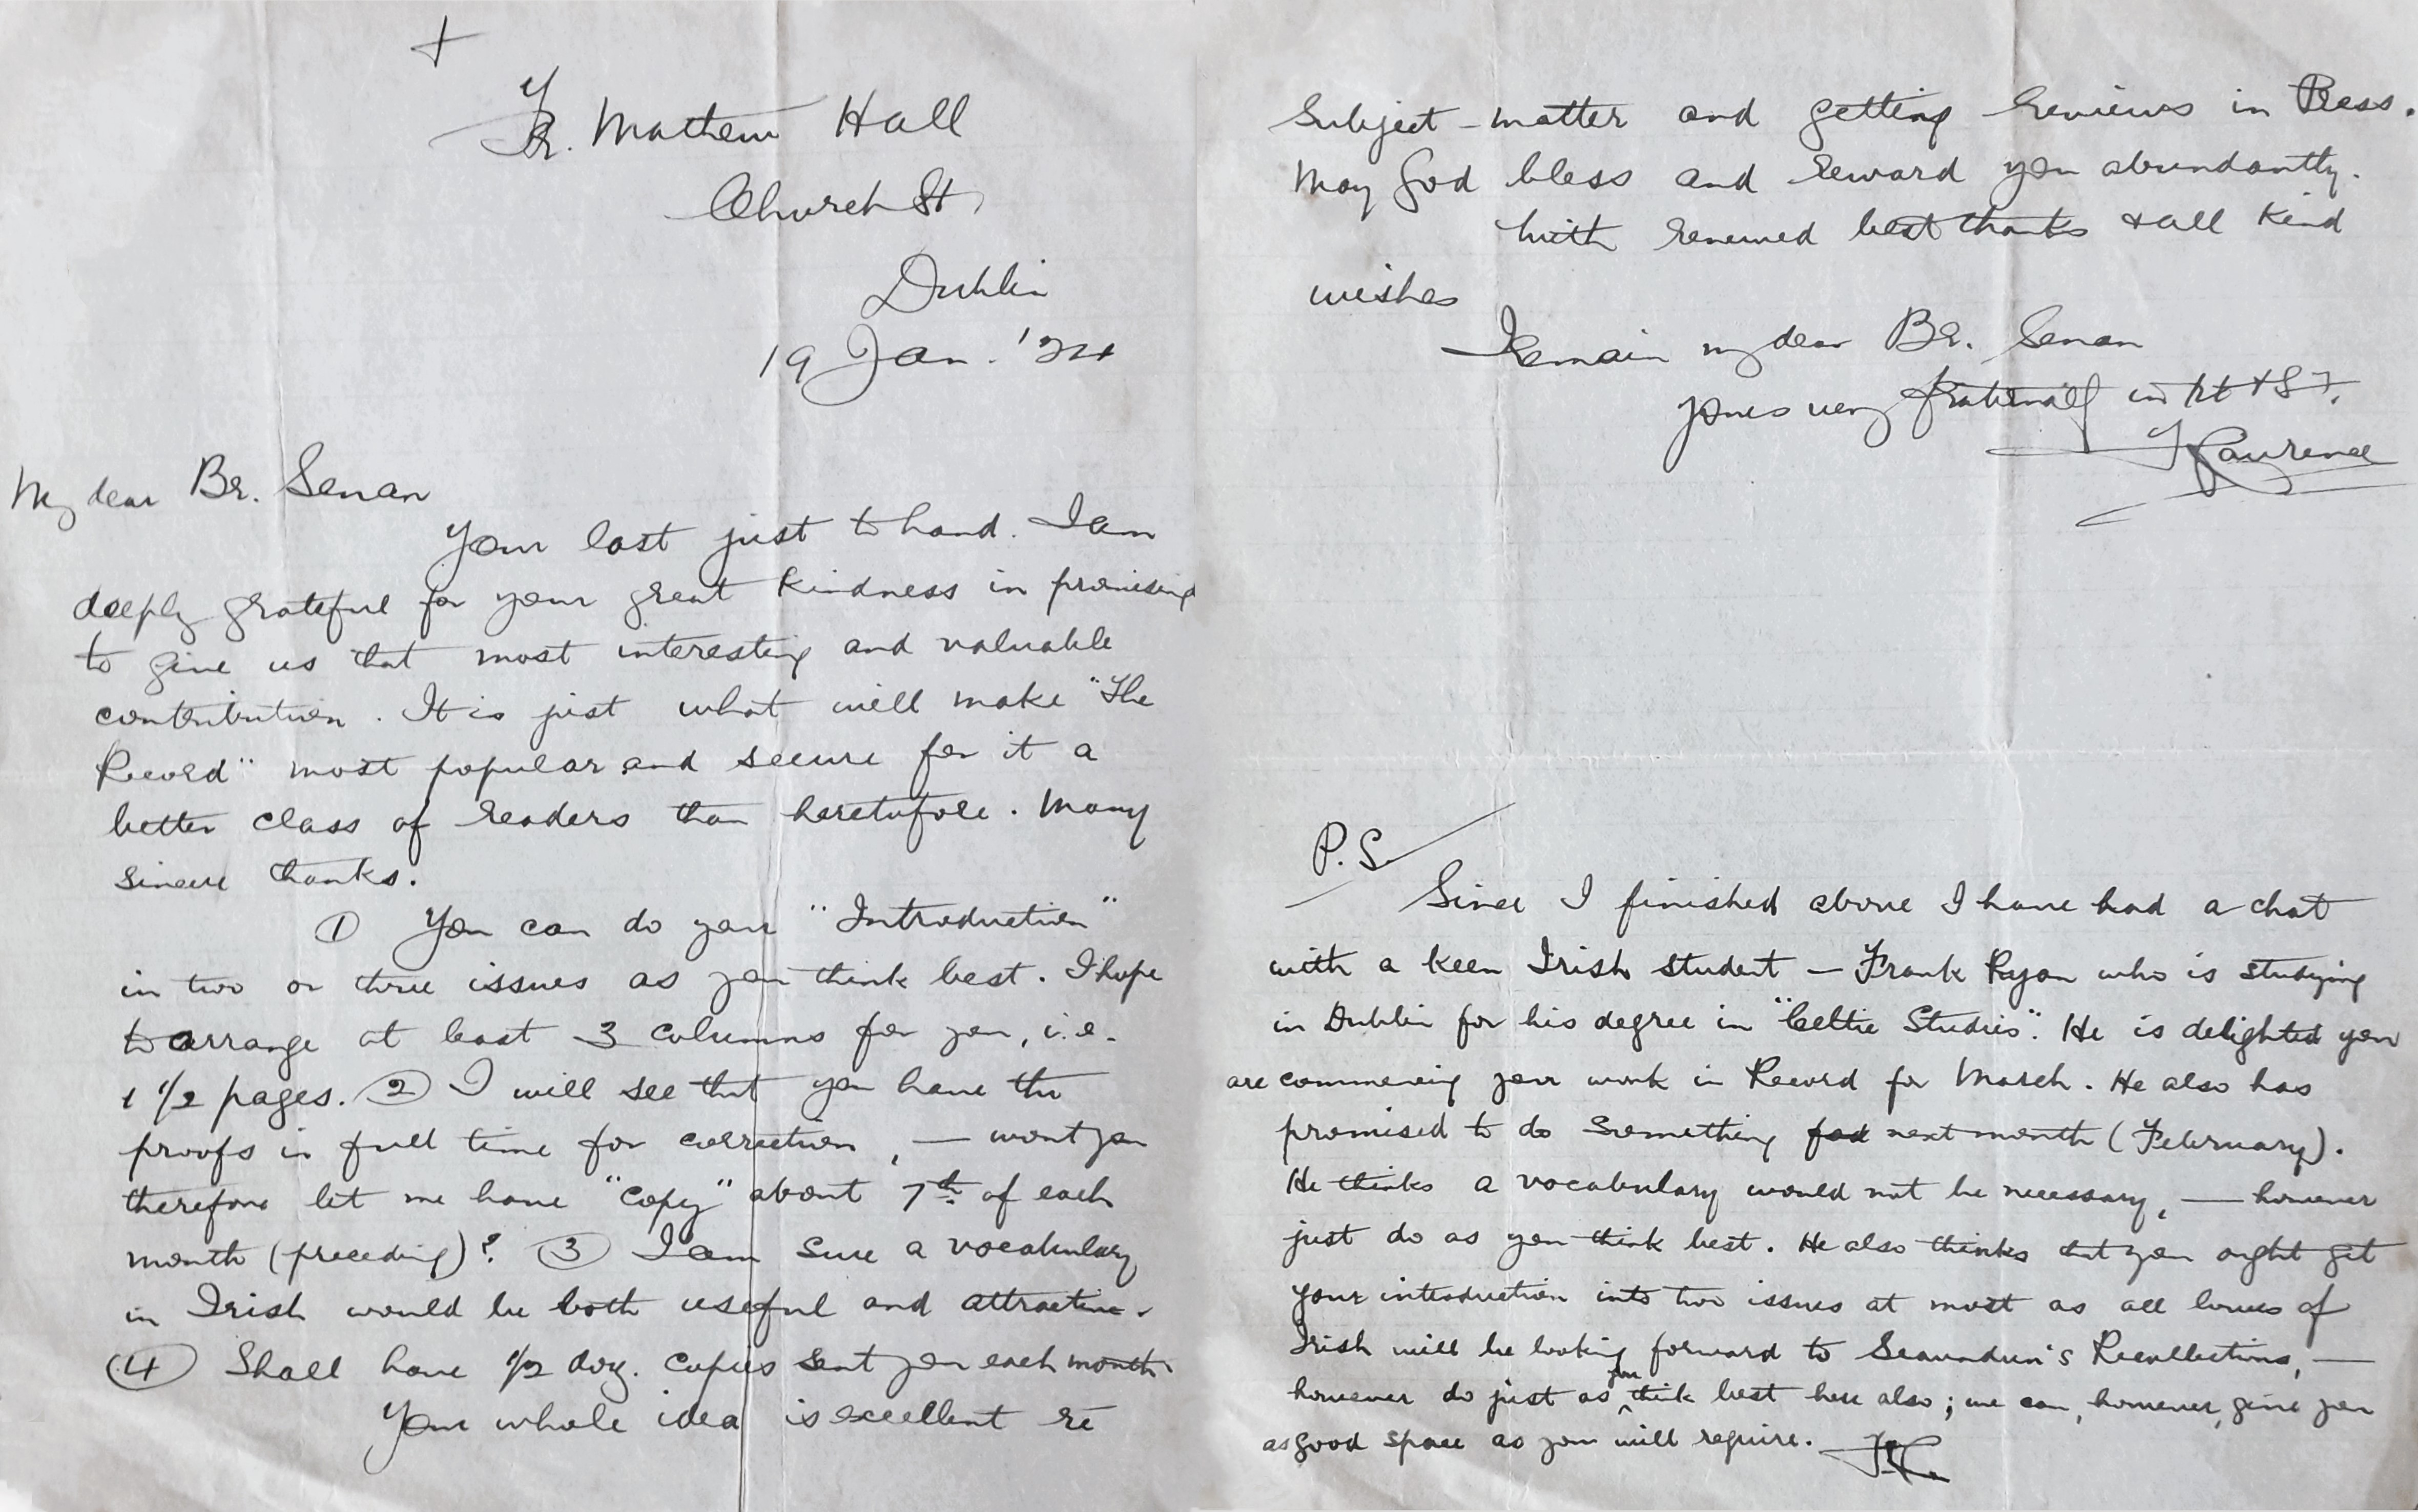 +
Fr. Mathew Hall
Church St,
Dublin
19 Jan. '24
My dear Br. Senan
Your last just to hand. I am
deeply grateful for your great kindness in promising
to give us that most interesting and valuable
contribution. It is just what will make "The
Record" most popular and secure for it a
better class of readers than heretofore. Many
sincere thanks.
① You can do your "Introduction"
in two or three issues as you think best. I hope
to arrange at least 3 columns for you, i.e.
1 1/2 pages. ② I will see that you have the
proofs in full time for correction, — wont you
therefore let me have "copy" about 7th of each
month (preceding)? ③ I am sure a vocabulary
in Irish would be both useful and attractive.
④ Shall have 1/2 doz. copies sent you each month.
Your whole idea is excellent re
Subject-matter and getting reviews in Press.
May God bless and reward you abundantly.
With renewed best thanks & all kind
wishes
I remain my dear Br. Senan
yours very fraternally in
Fr Laurence
P.S.
Since I finished above I have had a chat
with a keen Irish student — Frank Ryan who is studying
in Dublin for his degree in "Celtic Studies". He is delighted you
are commencing your work in Record for March. He also has
promised to do something for next month (February).
He thinks a vocabulary would not be necessary, — however
just do as you think best. He also thinks that you ought get
your introduction into two issues at most as all lovers of
Irish will be looking forward to Seaundun's Recollections, —
however do just as you think best here also; we can, however, give you
as good space as you will require.